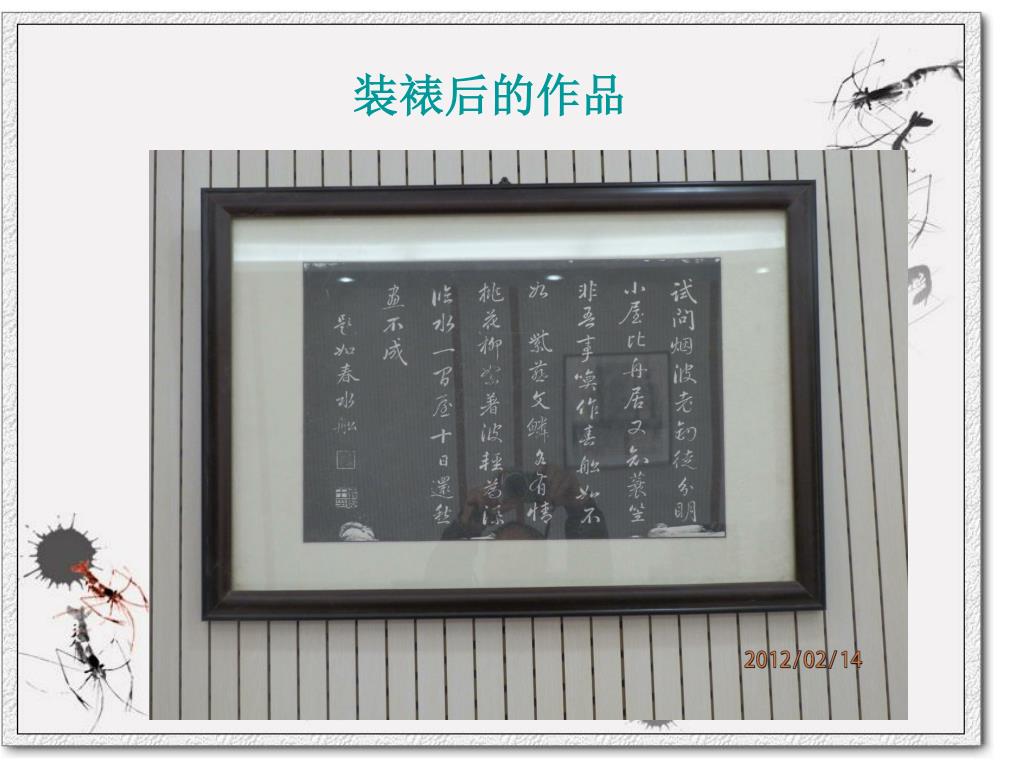 装裱后的作品
试问烟波老钓徒分明
小屋比舟居又知蓑笠
非吾事唤作春舩如不
如 紫燕文鳞各有情
桃花柳絮著波輕为添
临水一间屋十日還愁
画不成
题如春水舩
2012/02/14